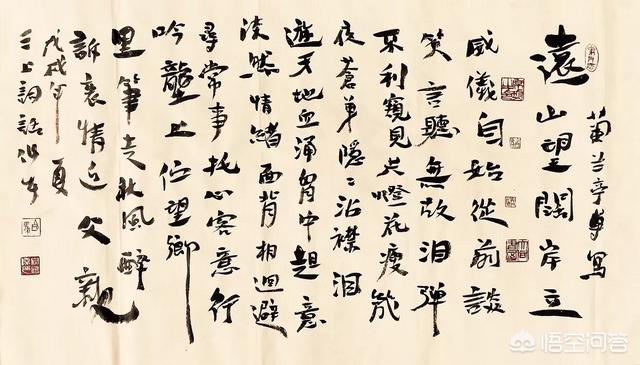 亭
寫
遠山望闊岸立
威儀自始從前談
笑言聽無故泪彈
利窺見共燈花瘦
夜蒼草隱〻沾襟泪
遊天地血涌胷中意
淡然情緒面背相迴避
尋常事托心客意行
吟壟上伫望鄉
里筆走秋風醉
訴衷情近父親
戊戌年夏
三上詞話
悟空问答